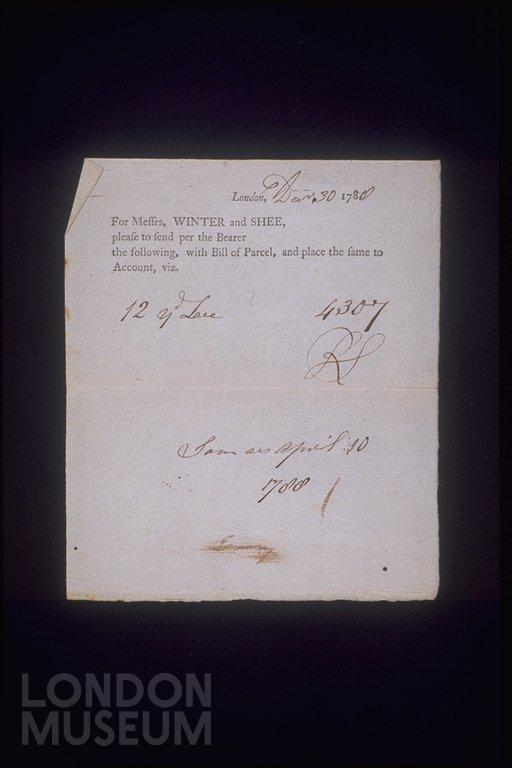 London, Decr. 30 1788
For Meſſrs, WINTER and SHEE,
pleaſe to ſend per the Bearer
the following, with Bill of Parcel, and place the ſame to
Account, viz.
12 yd Lace 4307
RS
Same as April 10
1788
LONDON
MUSEUM